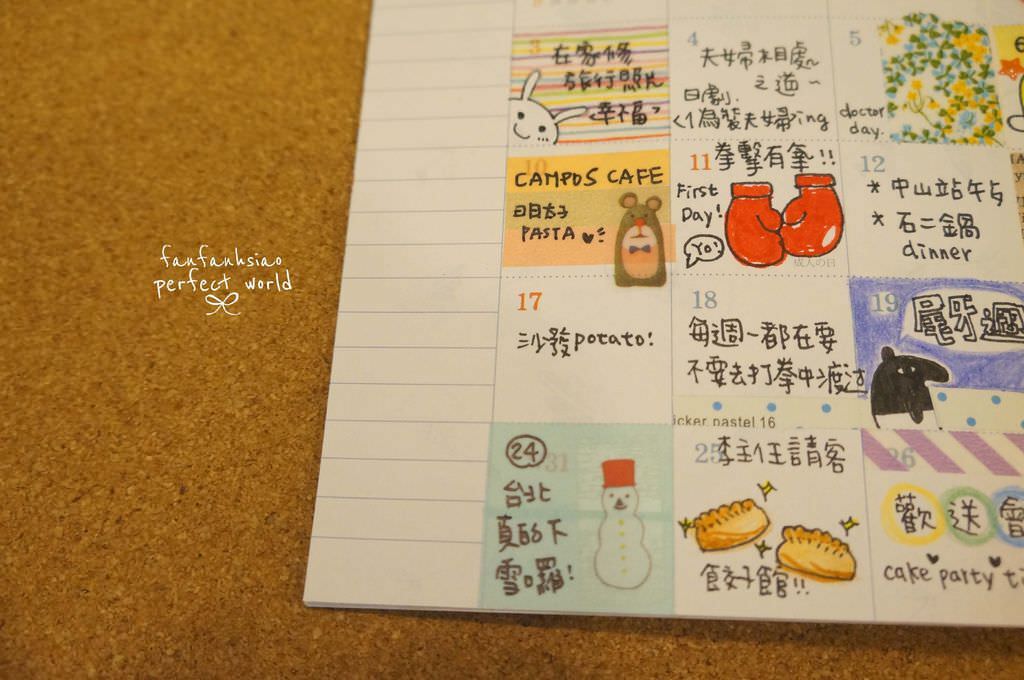 fanfanhsiao
perfect world
3
在家修
旅行照片
幸福
4
夫婦相處
之道~
日劇.
偽裝夫婦ing
5
doctor
day.
10
CAMPOS CAFE
明太子
PASTA
11
拳擊有氧!!
First
Day!
Yo!
成人の日
12
* 中山站午后
* 石二鍋
dinner
17
沙發potato!
18
每週一都在要
不要去打拳中渡過
19
icker pastel 16
24
31
台北
真的下
雪囉!
25
李主任請客
餃子館!!
26
歡送會
cake party